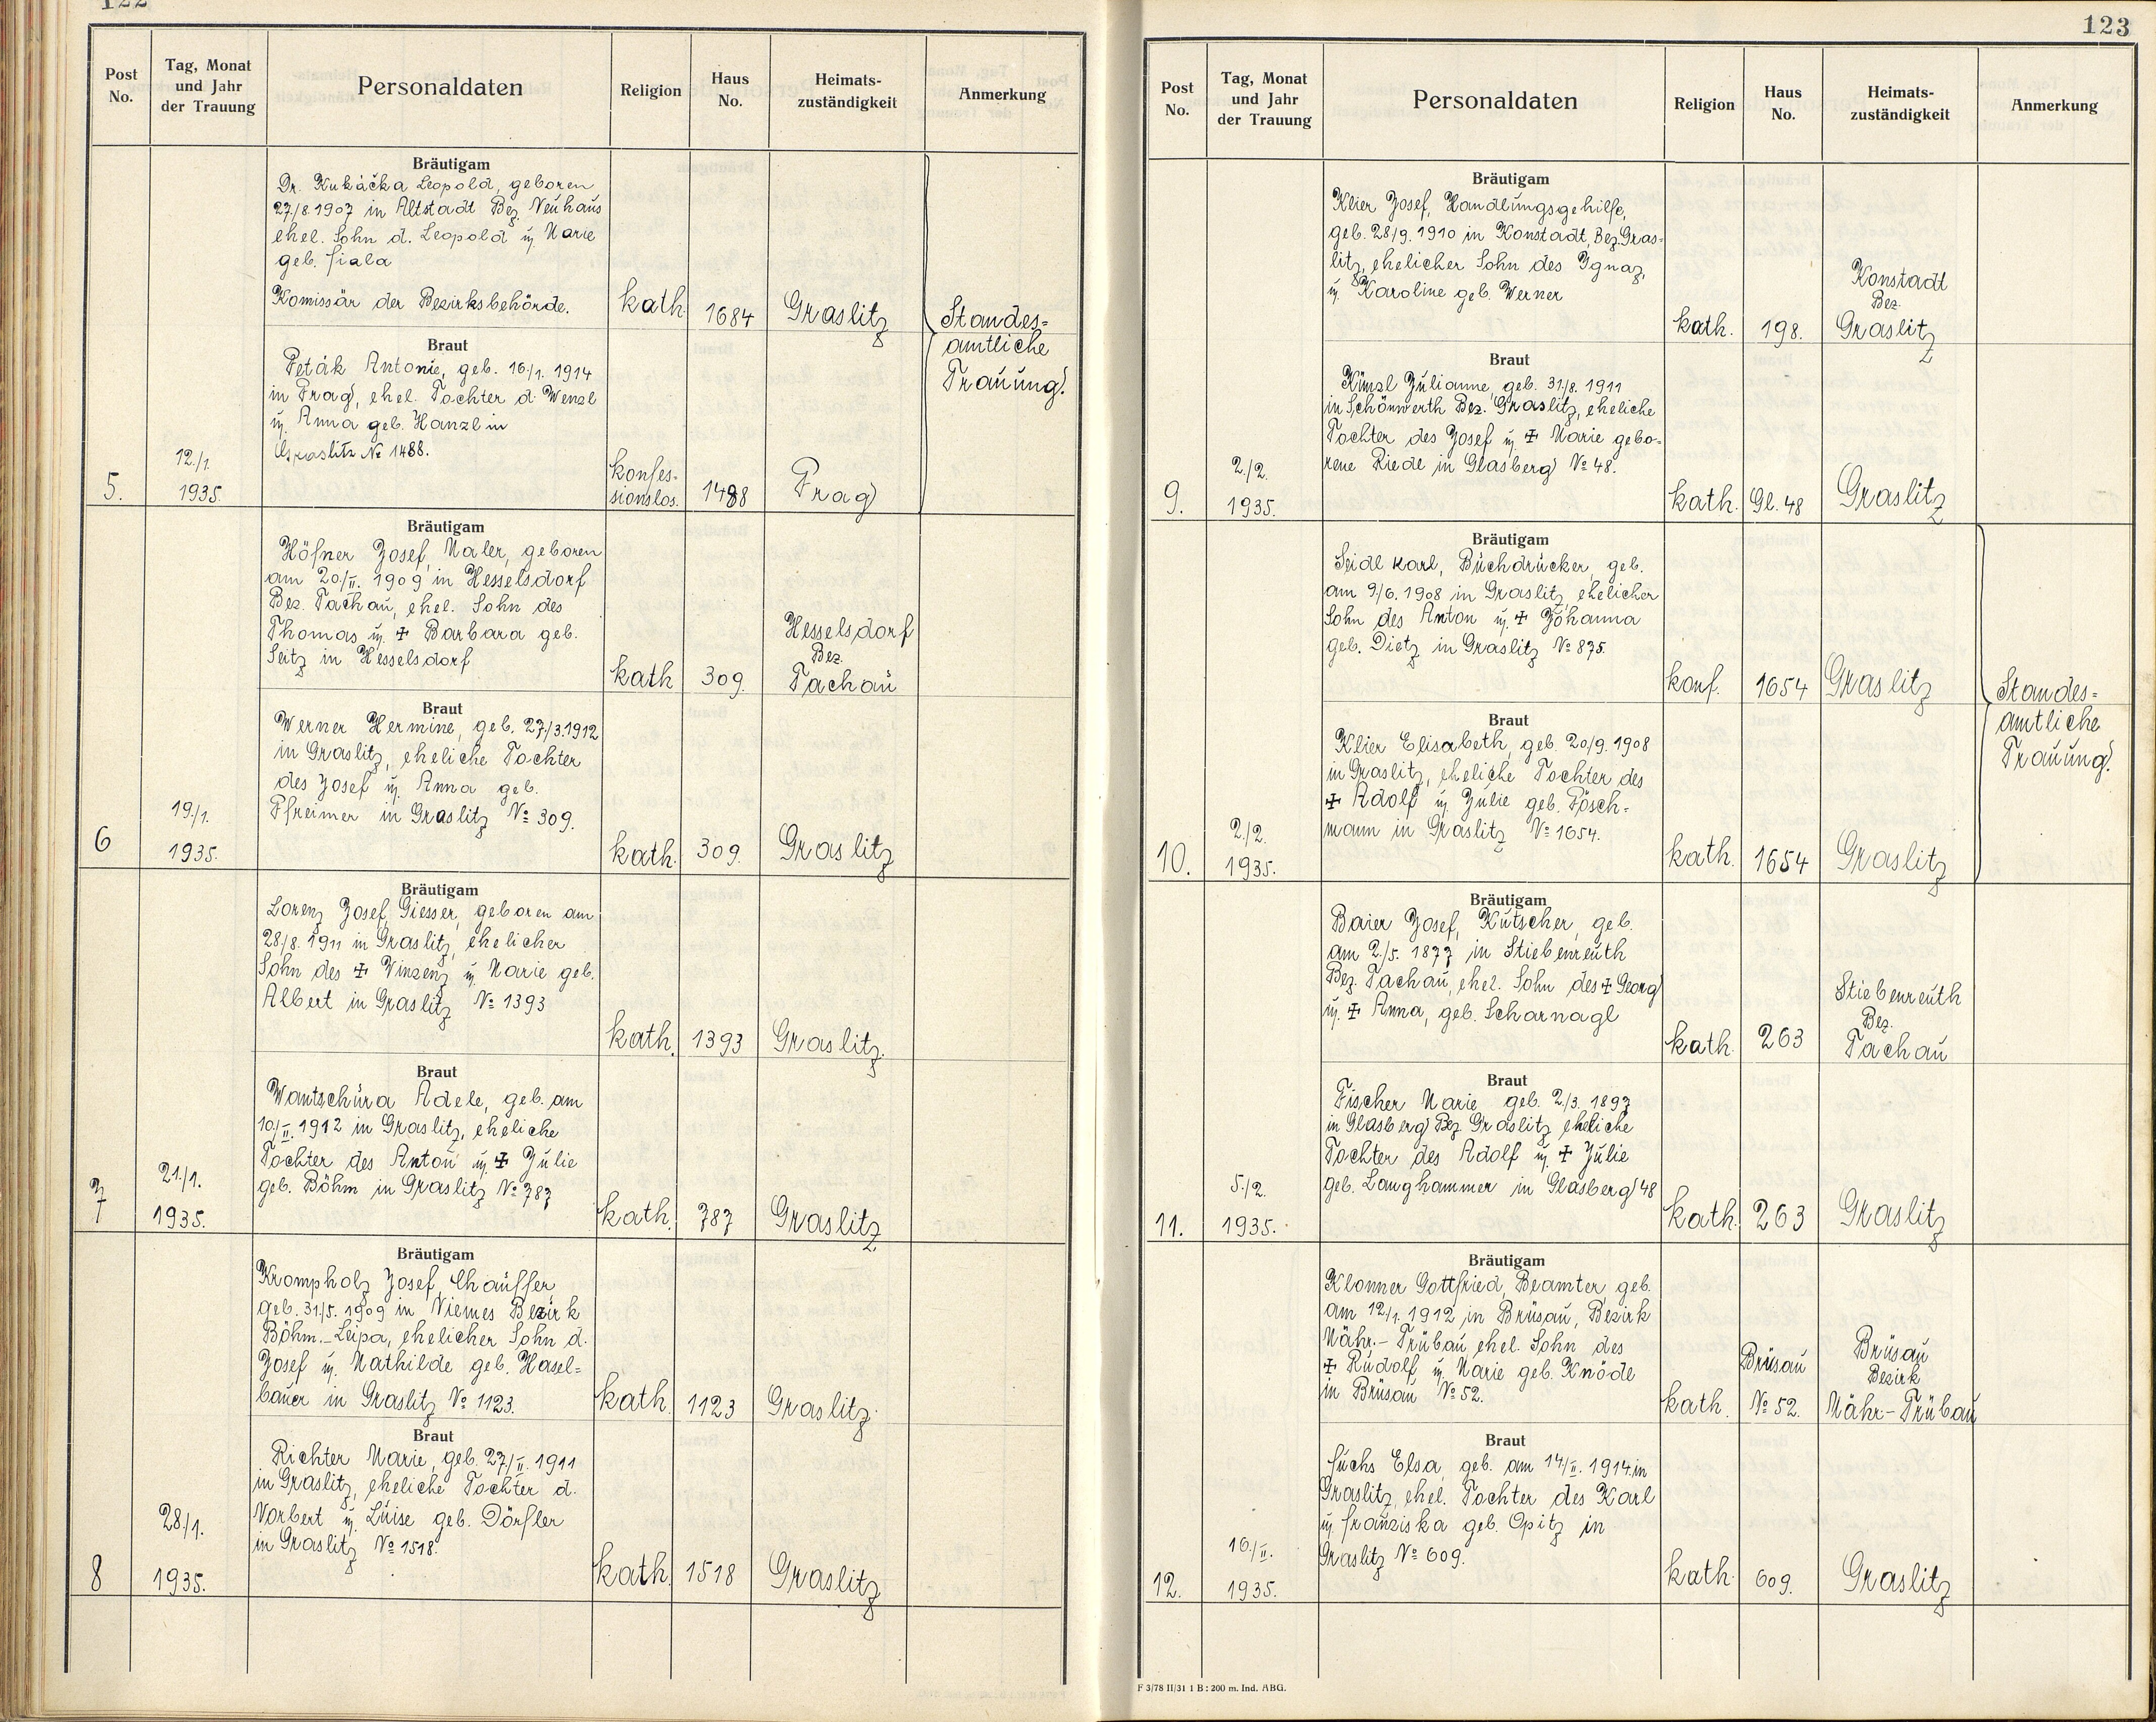 122
Post No.
Tag, Monat und Jahr der Trauung
Personaldaten
Religion
Haus No.
Heimats-zuständigkeit
Anmerkung
Bräutigam
Dr. Kukačka Leopold, geboren
27./8.1907 in Altstadt Bez. Neuhaus
ehel. Sohn d. Leopold u. Marie
geb. Fiala
Komissär der Bezirksbehörde.
kath. 1684 Graslitz
Standes=
amtliche
Trauung.
Braut
Peták Antonie, geb. 16./1. 1914
in Prag, ehel. Tochter d. Wenzl
u. Anna geb. Hanzl in
Graslitz No 1488.
5.
12./1.
1935.
konfes-
sionslos. 1488 Prag
Bräutigam
Höfner Josef, Maler, geboren
am 20./II. 1909 in Hesselsdorf
Bez. Tachau, ehel. Sohn des
Thomas u. ✝ Barbara geb.
Seitz in Hesselsdorf
kath 309.
Hesselsdorf
Bez.
Tachau
Braut
Werner Hermine, geb. 27/3.1912
in Graslitz, eheliche Tochter
des Josef u. Anna geb.
Pfreimer in Graslitz No 309.
6
19./1.
1935.
kath. 309. Graslitz
Bräutigam
Lorenz Josef, Giesser, geboren am
28/8. 1911 in Graslitz, ehelicher
Sohn des ✝ Vinzenz u. Marie geb.
Albert in Graslitz No 1393
kath. 1393 Graslitz.
Braut
Wantschura Adele, geb. am
10./II. 1912 in Graslitz, eheliche
Tochter des Anton u. ✝ Julie
geb. Böhm in Graslitz No 787
7
21./1.
1935.
kath. 787 Graslitz
Bräutigam
Krompholz Josef, Chauffer
geb. 31./5. 1909 in Niemes Bezirk
Böhm.-Leipa, ehelicher Sohn d.
Josef u. Mathilde geb. Hasel=
bauer in Graslitz No 1123.
kath. 1123 Graslitz.
Braut
Richter Marie, geb. 27./II. 1911
in Graslitz, eheliche Tochter d.
Norbert u. Luise geb. Dörfler
in Graslitz No 1518.
8
28./1.
1935.
kath. 1518 Graslitz
123
Post No.
Tag, Monat und Jahr der Trauung
Personaldaten
Religion
Haus No.
Heimats-zuständigkeit
Anmerkung
Bräutigam
Klier Josef, Handlungsgehilfe,
geb. 28/9. 1910 in Konstadt, Bez. Gras=
litz, ehelicher Sohn des Ignaz,
u. Karoline geb. Werner
kath. 198.
Konstadt
Bez.
Graslitz
Braut
Künzl Julianne, geb. 31./8. 1911
in Schönwerth Bez. Graslitz, eheliche
Tochter des Josef u. ✝ Marie gebo=
rene Riedl in Glasberg No 48.
9.
2./2.
1935.
kath. Gl. 48 Graslitz
Bräutigam
Seidl Karl, Buchdrucker, geb.
am 9/6. 1908 in Graslitz, ehelicher
Sohn des Anton u. ✝ Johanna
geb. Dietz in Graslitz No 875.
konf. 1654 Graslitz
Standes=
amtliche
Trauung.
Braut
Klier Elisabeth, geb. 20/9. 1908
in Graslitz, eheliche Tochter des
✝ Adolf u. Julie geb. Pösch=
mann in Graslitz No 1654.
10.
2./2.
1935.
kath. 1654 Graslitz
Bräutigam
Baier Josef, Kutscher, geb.
am 2./5. 1877 in Stiebenreuth
Bez. Tachau, ehel. Sohn des ✝ Georg
u. ✝ Anna, geb. Scharnagl
kath. 263
Stiebenreuth
Bez.
Tachau
Braut
Fischer Marie geb. 2./3. 1897
in Glasberg Bez. Graslitz eheliche
Tochter des Adolf u. ✝ Julie
geb. Langhammer in Glasberg 48
11.
5./2.
1935.
kath. 263 Graslitz
Bräutigam
Klonner Gottfried, Beamter, geb.
am 12/1. 1912 in Brüsau, Bezirk
Mähr.- Trübau ehel. Sohn des
✝ Rudolf u. Marie geb. Knöde
in Brüsau No 52.
kath.
Brüsau
No 52.
Brüsau
Bezirk
Mähr.- Trübau
Braut
Fuchs Elsa, geb. am 14/II. 1914 in
Graslitz, ehel. Tochter des Karl
u. Franziska geb. Opitz in
Graslitz No 609.
12.
16./II.
1935.
kath. 609. Graslitz
F 3/78 II/31 1 B : 200 m. Ind. ABG.